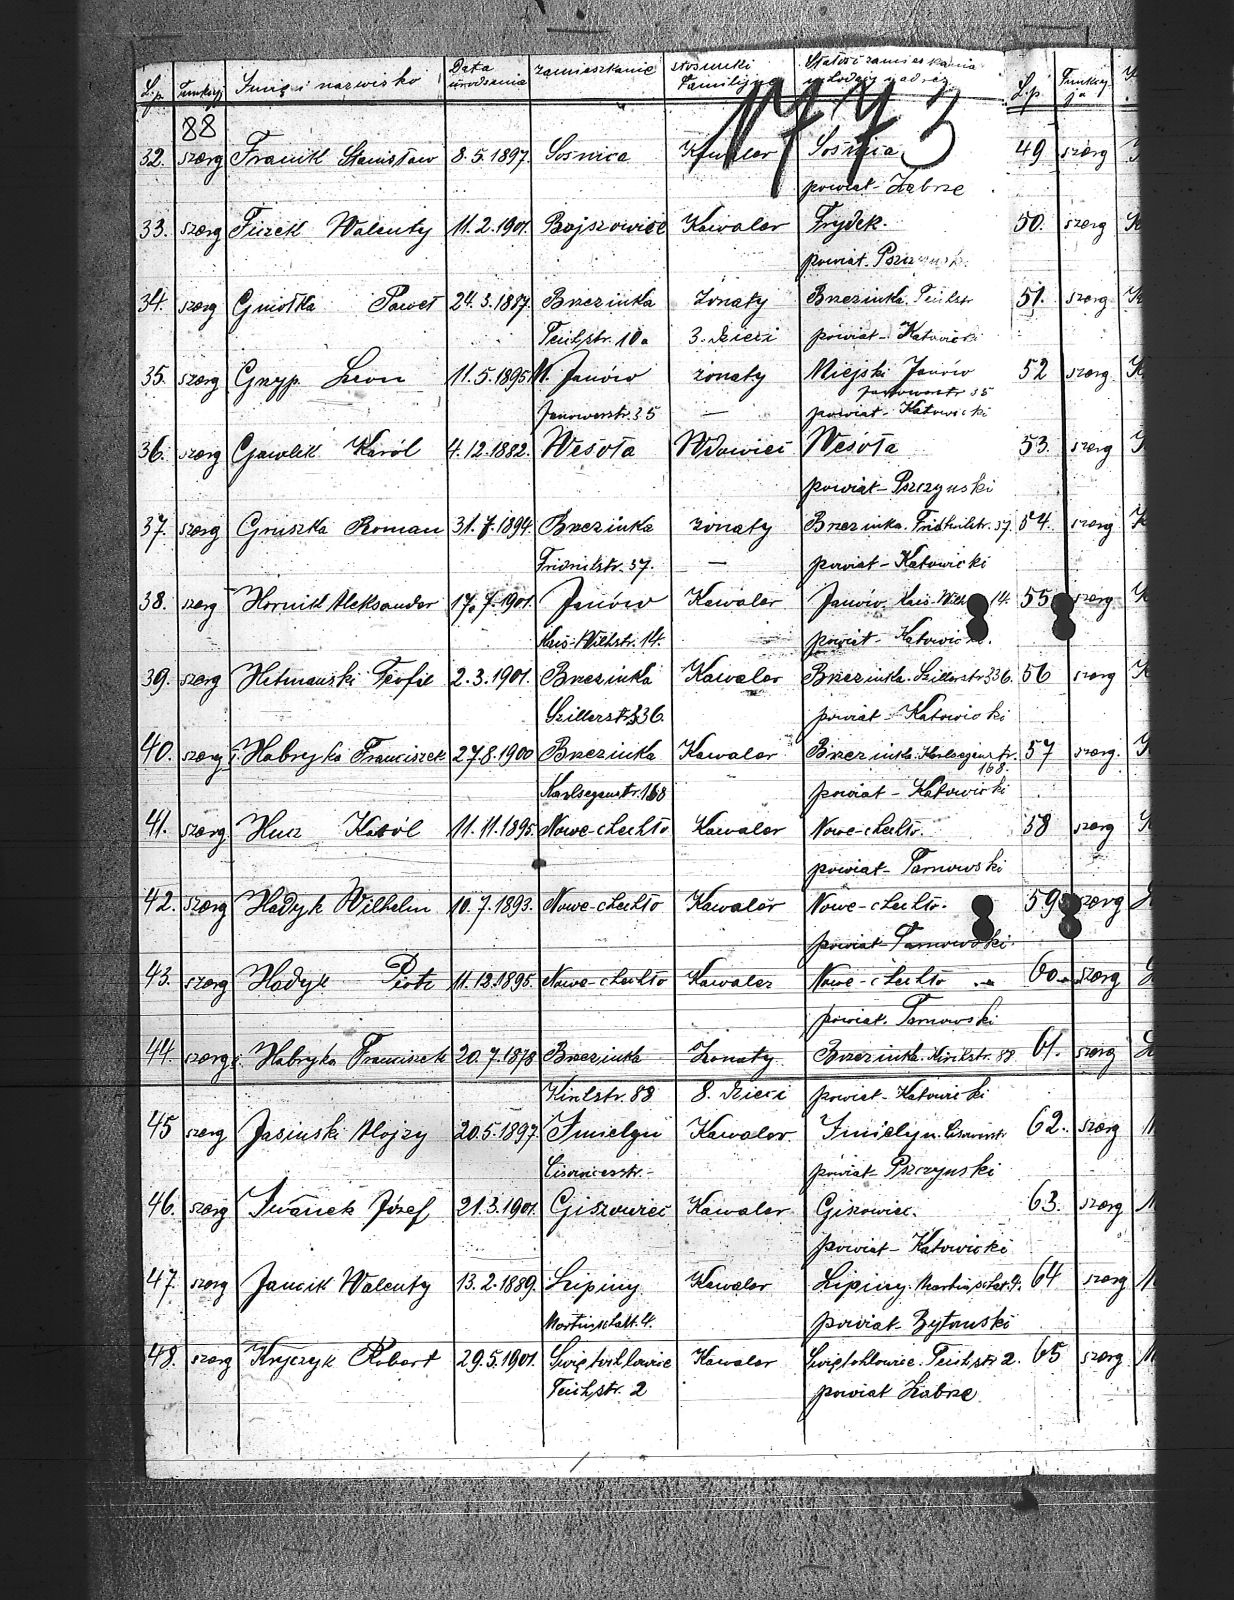 L.p. Funkcyj Imię i nazwisko Data urodzenia zamieszkanie stosunki familijne L.p. Funkcy
1773
88
32. szerg Franik Stanisław 8.5.1897. Sośnica Kawaler Sośnica 49 szerg
powiat - Zabrze
33. szerg Fiszek Walenty 11.2.1901. Bojszowice Kawaler Frydek. 50. szerg K
powiat. Pszczynsk.
34. szerg Gmotka Paweł 24.3.1887. Brzezinka Żonaty Brzezinka. 51. szerg K
Teichstr. 10a 3. dzieci powiat - Katowicki
35. szerg Gryp. Leon 11.5.1895 M. Janów żonaty Miejski Janów 52 szerg K
Janowerstr 35
Janowerstr. 35 — powiat - Katowicki
36. szerg Gawlik Karól 4.12.1882. Wesoła Wdowiec Wesoła 53. szerg
powiat - Pszczynski
37. szerg Gruszka Roman 31.7.1894. Brzezinka żonaty Brzezinka. 37. 54. szerg K
37. — powiat - Katowicki
38. szerg Hornik Aleksander 17.7.1901. Janów Kawaler Janów. Kais-Wilh 14. 55 szerg K
Kais-Wilhstr. 14. powiat - Katowick.
39. szerg Hetmanski Teofil 2.3.1901. Brzezinka Kawaler Brzezinka. Szillerstr 336. 56 szerg K
Szillerstr 336. powiat - Katowicki
40. szerg Habryka Franciszek 27.8.1900 Brzezinka Kawaler Brzezinka. Karlsegenstr. 57 szerg.
168.
Karlsegenstr. 168 powiat - Katowicki
41. szerg. Hucz Karól 11.11.1895. Nowe-chechło Kawaler Nowe-chechło. 58 szerg
powiat - Tarnowski
42. szerg Hadyk Wilhelm 10.7.1893. Nowe-chechło Kawaler Nowe-chechło. 59 szerg
powiat - Tarnowski.
43. szerg Hadyk Piotr 11.12.1895. Nowe-chechło Kawaler Nowe-chechło 60. szerg
powiat. Tarnowski
44. szerg Habryka Franciszek 20.7.1878 Brzezinka Żonaty. Brzezinka. 88. 61. szerg
88 8. dzieci powiat - Katowicki
45 szerg Jasinski Alojzy 20.5.1897. Imielyn Kawaler. Imielyn. 62. szerg
powiat - Pszczynski
46. szerg Iwanek Józef 21.3.1901. Giszowiec Kawaler Giszowiec. 63. szerg
powiat - Katowicki
47. szerg Jancik Walenty 13.2.1889. Lipiny Kawaler Lipiny. Martinschat. 4. 64 szerg
Martinschat. 4. powiat - Bytomski
48. szerg Kryczyk Robert 29.5.1901. Świętochłowice Kawaler Świętochłowiec. Teichstr 2. 65 szerg.
Teichstr. 2 powiat Zabrze